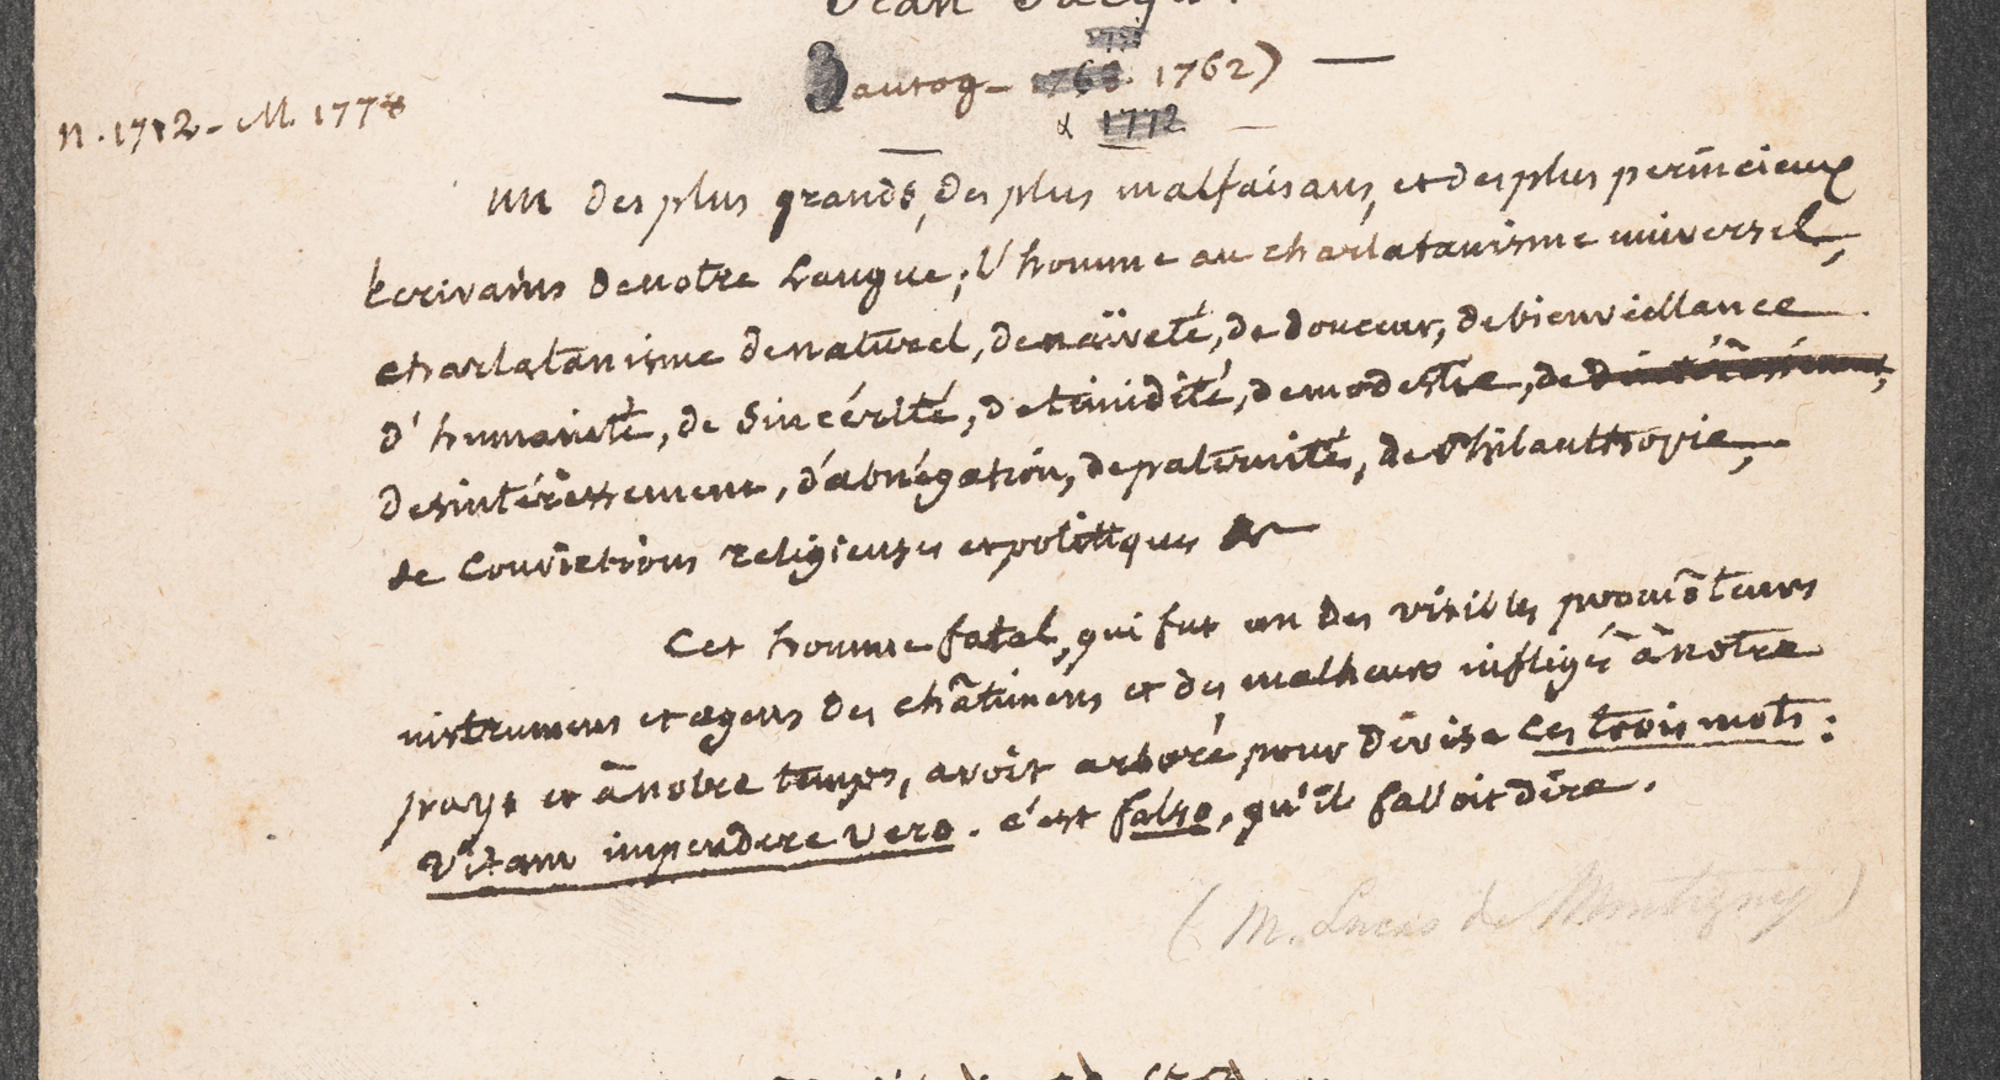 Jean Jacqu
— 3 autog — 1762) —
& 1772
n. 1712 - M. 1778
un des plus grands, des plus malfaisans, et des plus pernicieux
Ecrivains de notre Langue; l'homme au charlatanisme universel,
charlatanisme de naturel, de naïveté, de douceur, de bienveillance
d'humanité, de sincérité, de timidité, de modestie, de
desintéressement, d'abnégation, de paternité, de Philanthropie,
de convictions religieuses et politiques &
Cet homme fatal, qui fut un des visibles promôteurs
instrumens et agens des châtimens et des malheurs infligés à notre
pays et à notre temps, avoit arboré pour divise ces trois mots:
Vitam impendere vero. c'est falso, qu'il falloit dire.
(M. Lucas de Montigny)